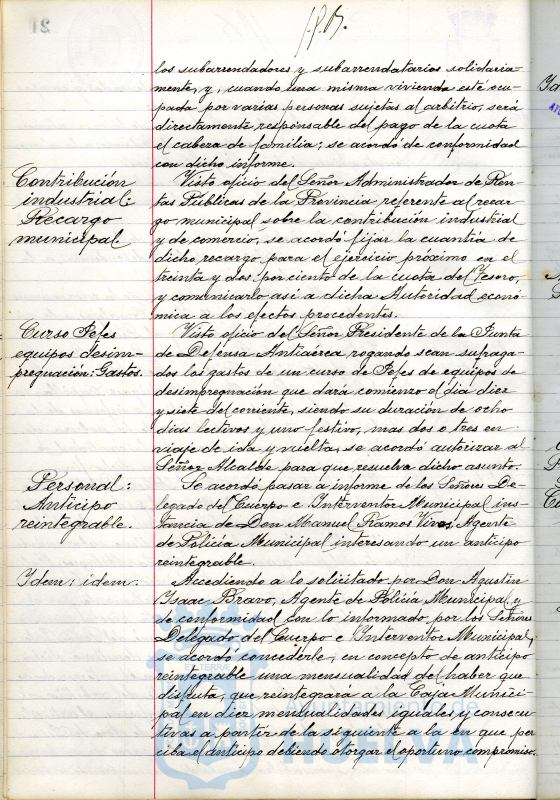 los subarrendadores y subarrendatarios solidaria-
mente, y, cuando una misma vivienda esté ocu-
pada por varias personas sujetas al arbitrio, será
directamente responsable del pago de la cuota
el cabeza de familia; se acordó de conformidad
con dicho informe.
Contribución
industrial:
Recargo
municipal.
Visto oficio del Señor Administrador de Ren-
tas Públicas de la Provincia referente al recar-
go municipal sobre la contribución industrial
y de comercio, se acordó fijar la cuantía de
dicho recargo para el ejercicio próximo en el
treinta y dos por ciento de la cuota del Tesoro,
y comunicarlo así a dicha Autoridad econó-
mica a los efectos procedentes.
Curso Jefes
equipos desim-
pregnación: Gastos.
Visto oficio del Señor Presidente de la Junta
de Defensa Antiaérea rogando sean sufraga-
dos los gastos de un curso de Jefes de equipos de
desimpregnación que dará comienzo el día diez
y siete del corriente, siendo su duración de ocho
días lectivos y uno festivo, mas dos o tres en
viaje de ida y vuelta, se acordó autorizar al
Señor Alcalde para que resuelva dicho asunto.
Personal:
Anticipo
reintegrable.
Se acordó pasar a informe de los Señores De-
legado del Cuerpo e Interventor Municipal ins-
tancia de Don Manuel Ramos Vivas, Agente
de Policía Municipal interesando un anticipo
reintegrable.
Idem: idem.
Accediendo a lo solicitado por Don Agustín
Isaac Bravo, Agente de Policía Municipal y
de conformidad con lo informado por los Señores
Delegado del Cuerpo e Interventor Municipal,
se acordó concederle, en concepto de anticipo
reintegrable una mensualidad del haber que
disfruta, que reintegrará a la Caja Munici-
pal en diez mensualidades iguales y consecu-
tivas a partir de la siguiente a la en que per-
ciba el anticipo debiendo otorgar el oportuno compromiso.
Ayuntamiento de
HUELVA